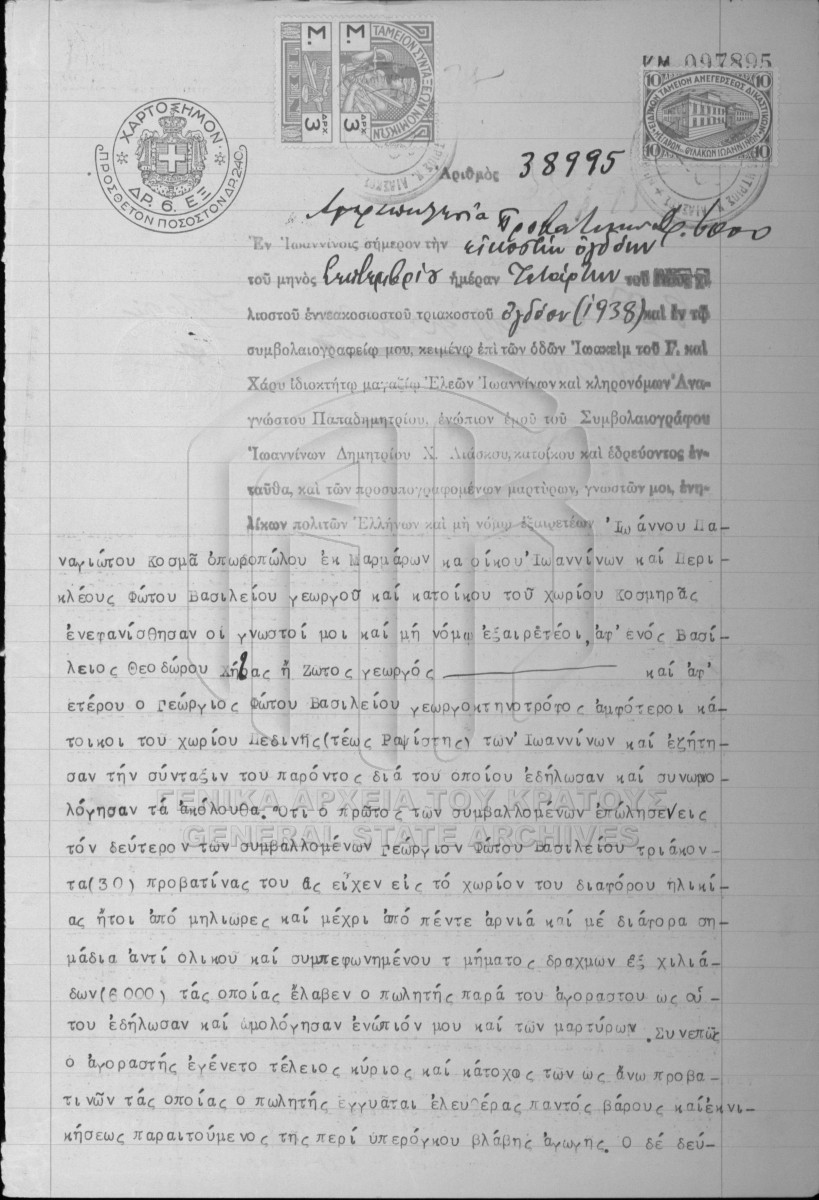 ΚΜ 097895
Σ. ΔΡΧ. 3
Σ. ΔΡΧ. 3
ΤΑΜΕΙΟΝ ΣΥΝΤΑΞΕΩΝ ΝΟΜΙΚΩΝ
10 10
ΧΑΡΤΟΣΗΜΟΝ
ΔΡ. 6. ΕΞ
ΠΡΟΣΘΕΤΟΝ ΠΟΣΟΣΤΟΝ ΔΡ. 2.40
Ἀριθμὸς 38995
Ἐν Ἰωαννίνοις σήμερον τὴν εἰκοστὴν ὀγδόην
τοῦ μηνὸς Σεπτεμβρίου ἡμέραν Τετάρτην τοῦ χι-
λιοστοῦ ἐννεακοσιοστοῦ τριακοστοῦ ὀγδόου (1938) καὶ ἐν τῷ
συμβολαιογραφείῳ μου, κειμένῳ ἐπὶ τῶν ὁδῶν Ἰωακεὶμ τοῦ Γ. καὶ
Χάρυ ἰδιοκτήτῳ μαγαζίῳ Ἐλεῶν Ἰωαννίνων καὶ κληρονόμων Ἀνα-
γνώστου Παπαδημητρίου, ἐνώπιον ἐμοῦ τοῦ Συμβολαιογράφου
Ἰωαννίνων Δημητρίου Χ. Λιάσκου, κατοίκου καὶ ἑδρεύοντος ἐν-
ταῦθα, καὶ τῶν προσυπογραφομένων μαρτύρων, γνωστῶν μοι, ἐνη-
λίκων πολιτῶν Ἑλλήνων καὶ μὴ νόμῳ ἐξαιρετέων Ἰωάννου Πα-
ναγιώτου Κοσμᾶ ὀπωροπώλου ἐκ Μαρμάρων κα οίκου Ἰωαννίνων καί Περι-
κλέους Φώτου Βασιλείου γεωργοῦ καί κατοίκου τοῦ χωρίου Κοσμηρᾶς
ἐνεφανίσθησαν οι γνωστοί μοι καί μή νόμῳ ἐξαιρετέοι, ἀφ' ενός Βασί-
λειος Θεοδώρου ἤ Ζωτος γεωργός καί ἀφ'
ετέρου ο Γεώργιος Φώτου Βασιλείου γεωργοκτηνοτρόφος ἀμφότεροι κά-
τοικοι του χωρίου Πεδινῆς (τέως Ραψίστης) των Ἰωαννίνων καί εζήτη-
σαν τήν σύνταξιν του παρόντος διά του οποίου εδήλωσαν καί συνωμο
λόγησαν τά ἀκόλουθα. Οτι ο πρῶτος των συμβαλλομένων ἐπώλησενεις
τόν δεύτερον των συμβαλλομένων Γεώργιον Φώτου Βασιλείου τριάκον-
τα (30) προβατίνας του ἅς εἶχεν εἰς τό χωρίον του διαφόρου ηλικί-
ας ἤτοι ἀπό μηλιῶρες καί μέχρι ἀπό πέντε ἀρνιά καί μέ διάφορα ση-
μάδια αντί ολικου καί συμπεφωνημένου τ μήματος δραχμων ἕξ χιλιά-
δων (6000) τάς οποίας ἔλαβεν ο πωλητής παρά του ἀγοραστου ως οὕ-
του εδήλωσαν καί ὡμολόγησαν ἐνώπιόν μου καί των μαρτύρων. Συνεπῶς
ο ἀγοραστής ἐγένετο τέλειος κύριος καί κάτοχος των ὡς ἄνω προβα-
τινῶν τάς οποίας ο πωλητής εγγυᾶται ἐλευθέρας παντός βάρους καί ἐκνι-
κήσεως παραιτούμενος της περί ὑπερόγκου βλάβης ἀγωγῆς. Ο δέ δεύ-
ΓΕΝΙΚΑ ΑΡΧΕΙΑ ΤΟΥ ΚΡΑΤΟΥΣ
GENERAL STATE ARCHIVES